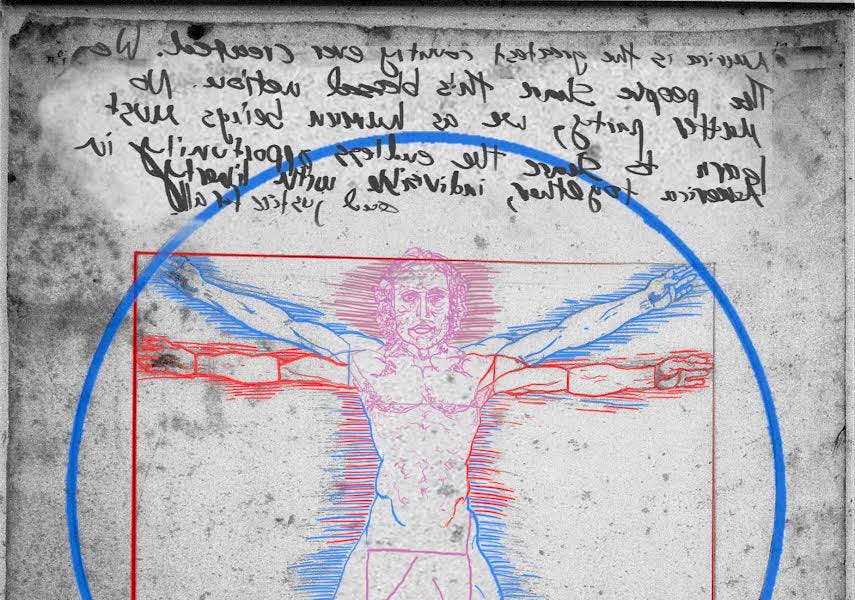 America is the greatest country ever created. We
The people share this blessed nation. No
matter party, we as human beings must
learn to share the endless opportunity in
America together, indivisible with liberty
and justice for all